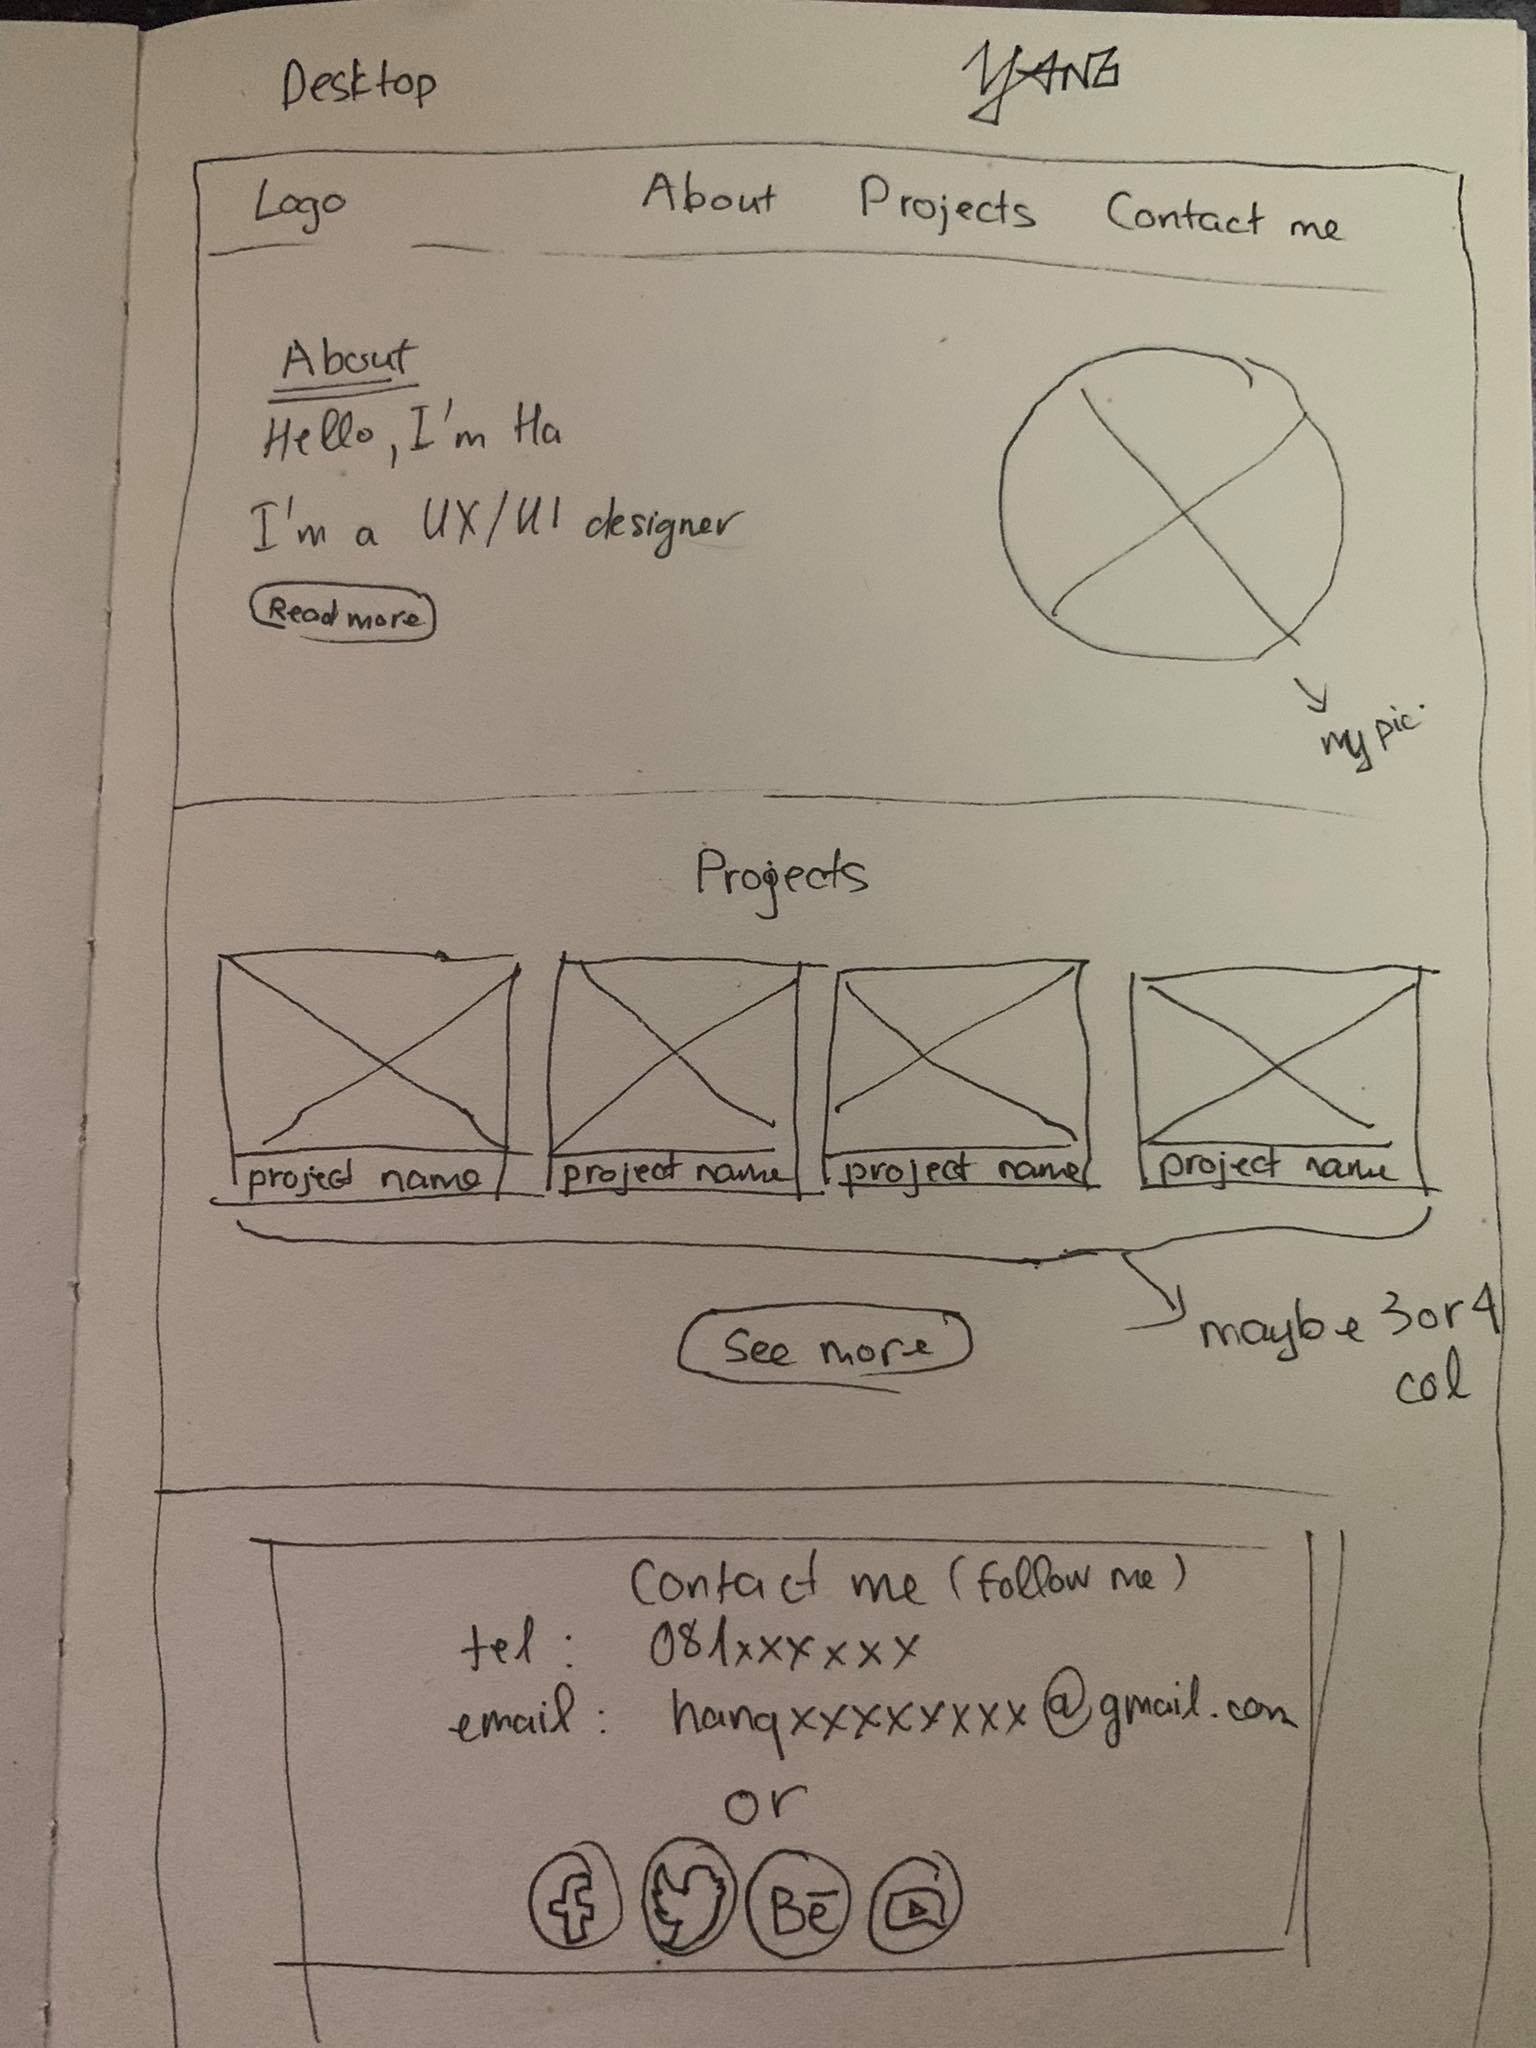 Desktop
YANG
Logo About Projects Contact me
About
Hello, I'm Ha
I'm a UX/UI designer
Read more
my pic.
Projects
project name project name project name project name
See more
maybe 3 or 4
col
Contact me (follow me)
tel : 081xxxxxxx
email : hanqxxxxxxxx@gmail.com
or
f Bē